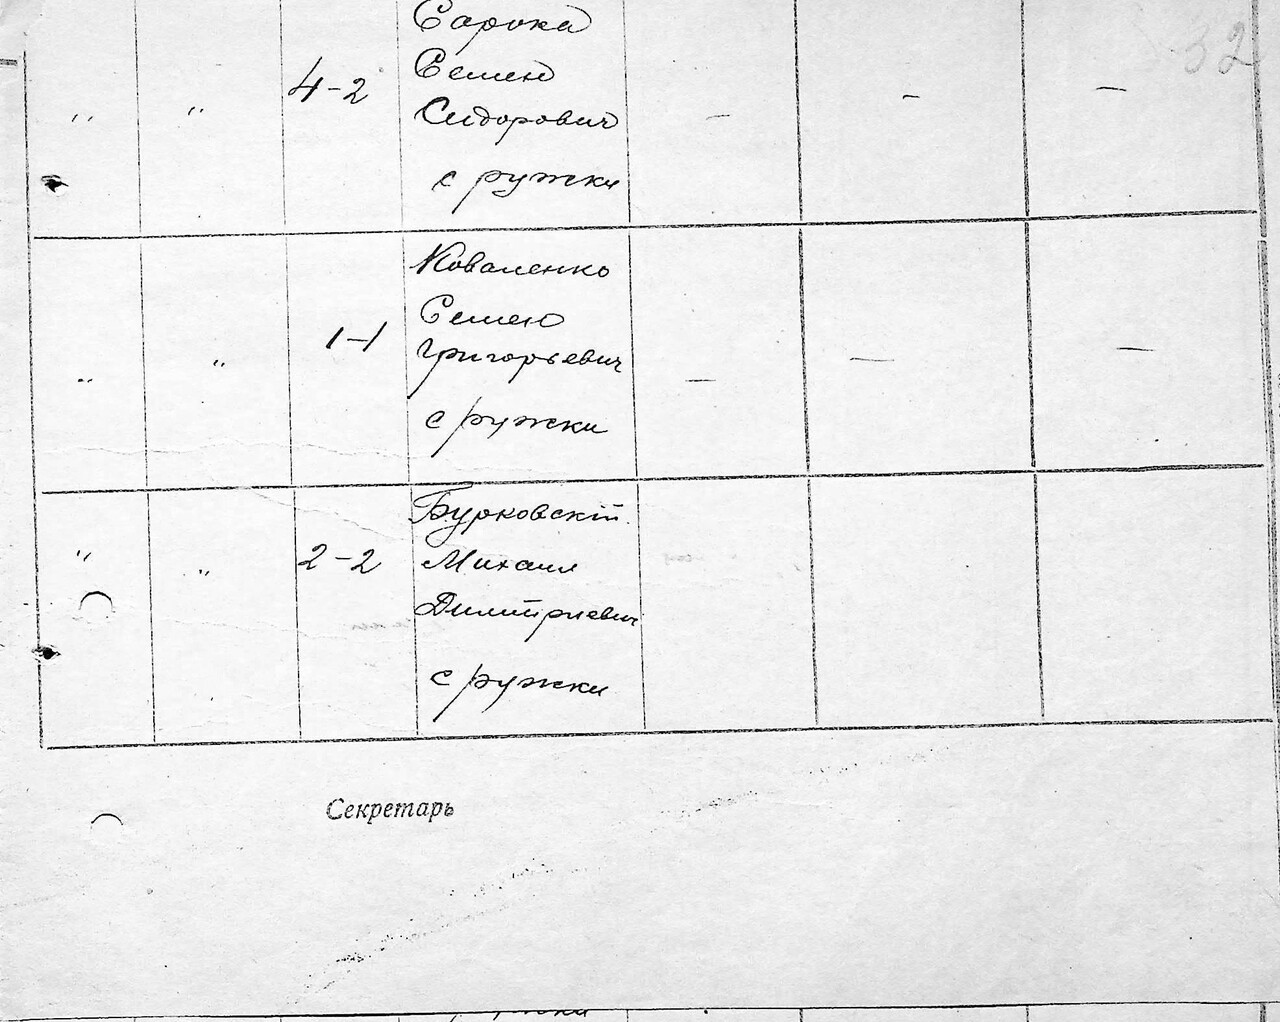 32
Сорока
Семен
" " 4-2 Сидорович - - -
с ружки
Коваленко
Семен
" " 1-1 Григорьевич - - -
с ружки
Бурковскій
" " 2-2 Михаил
Дмитриевич
с ружки
Секретарь